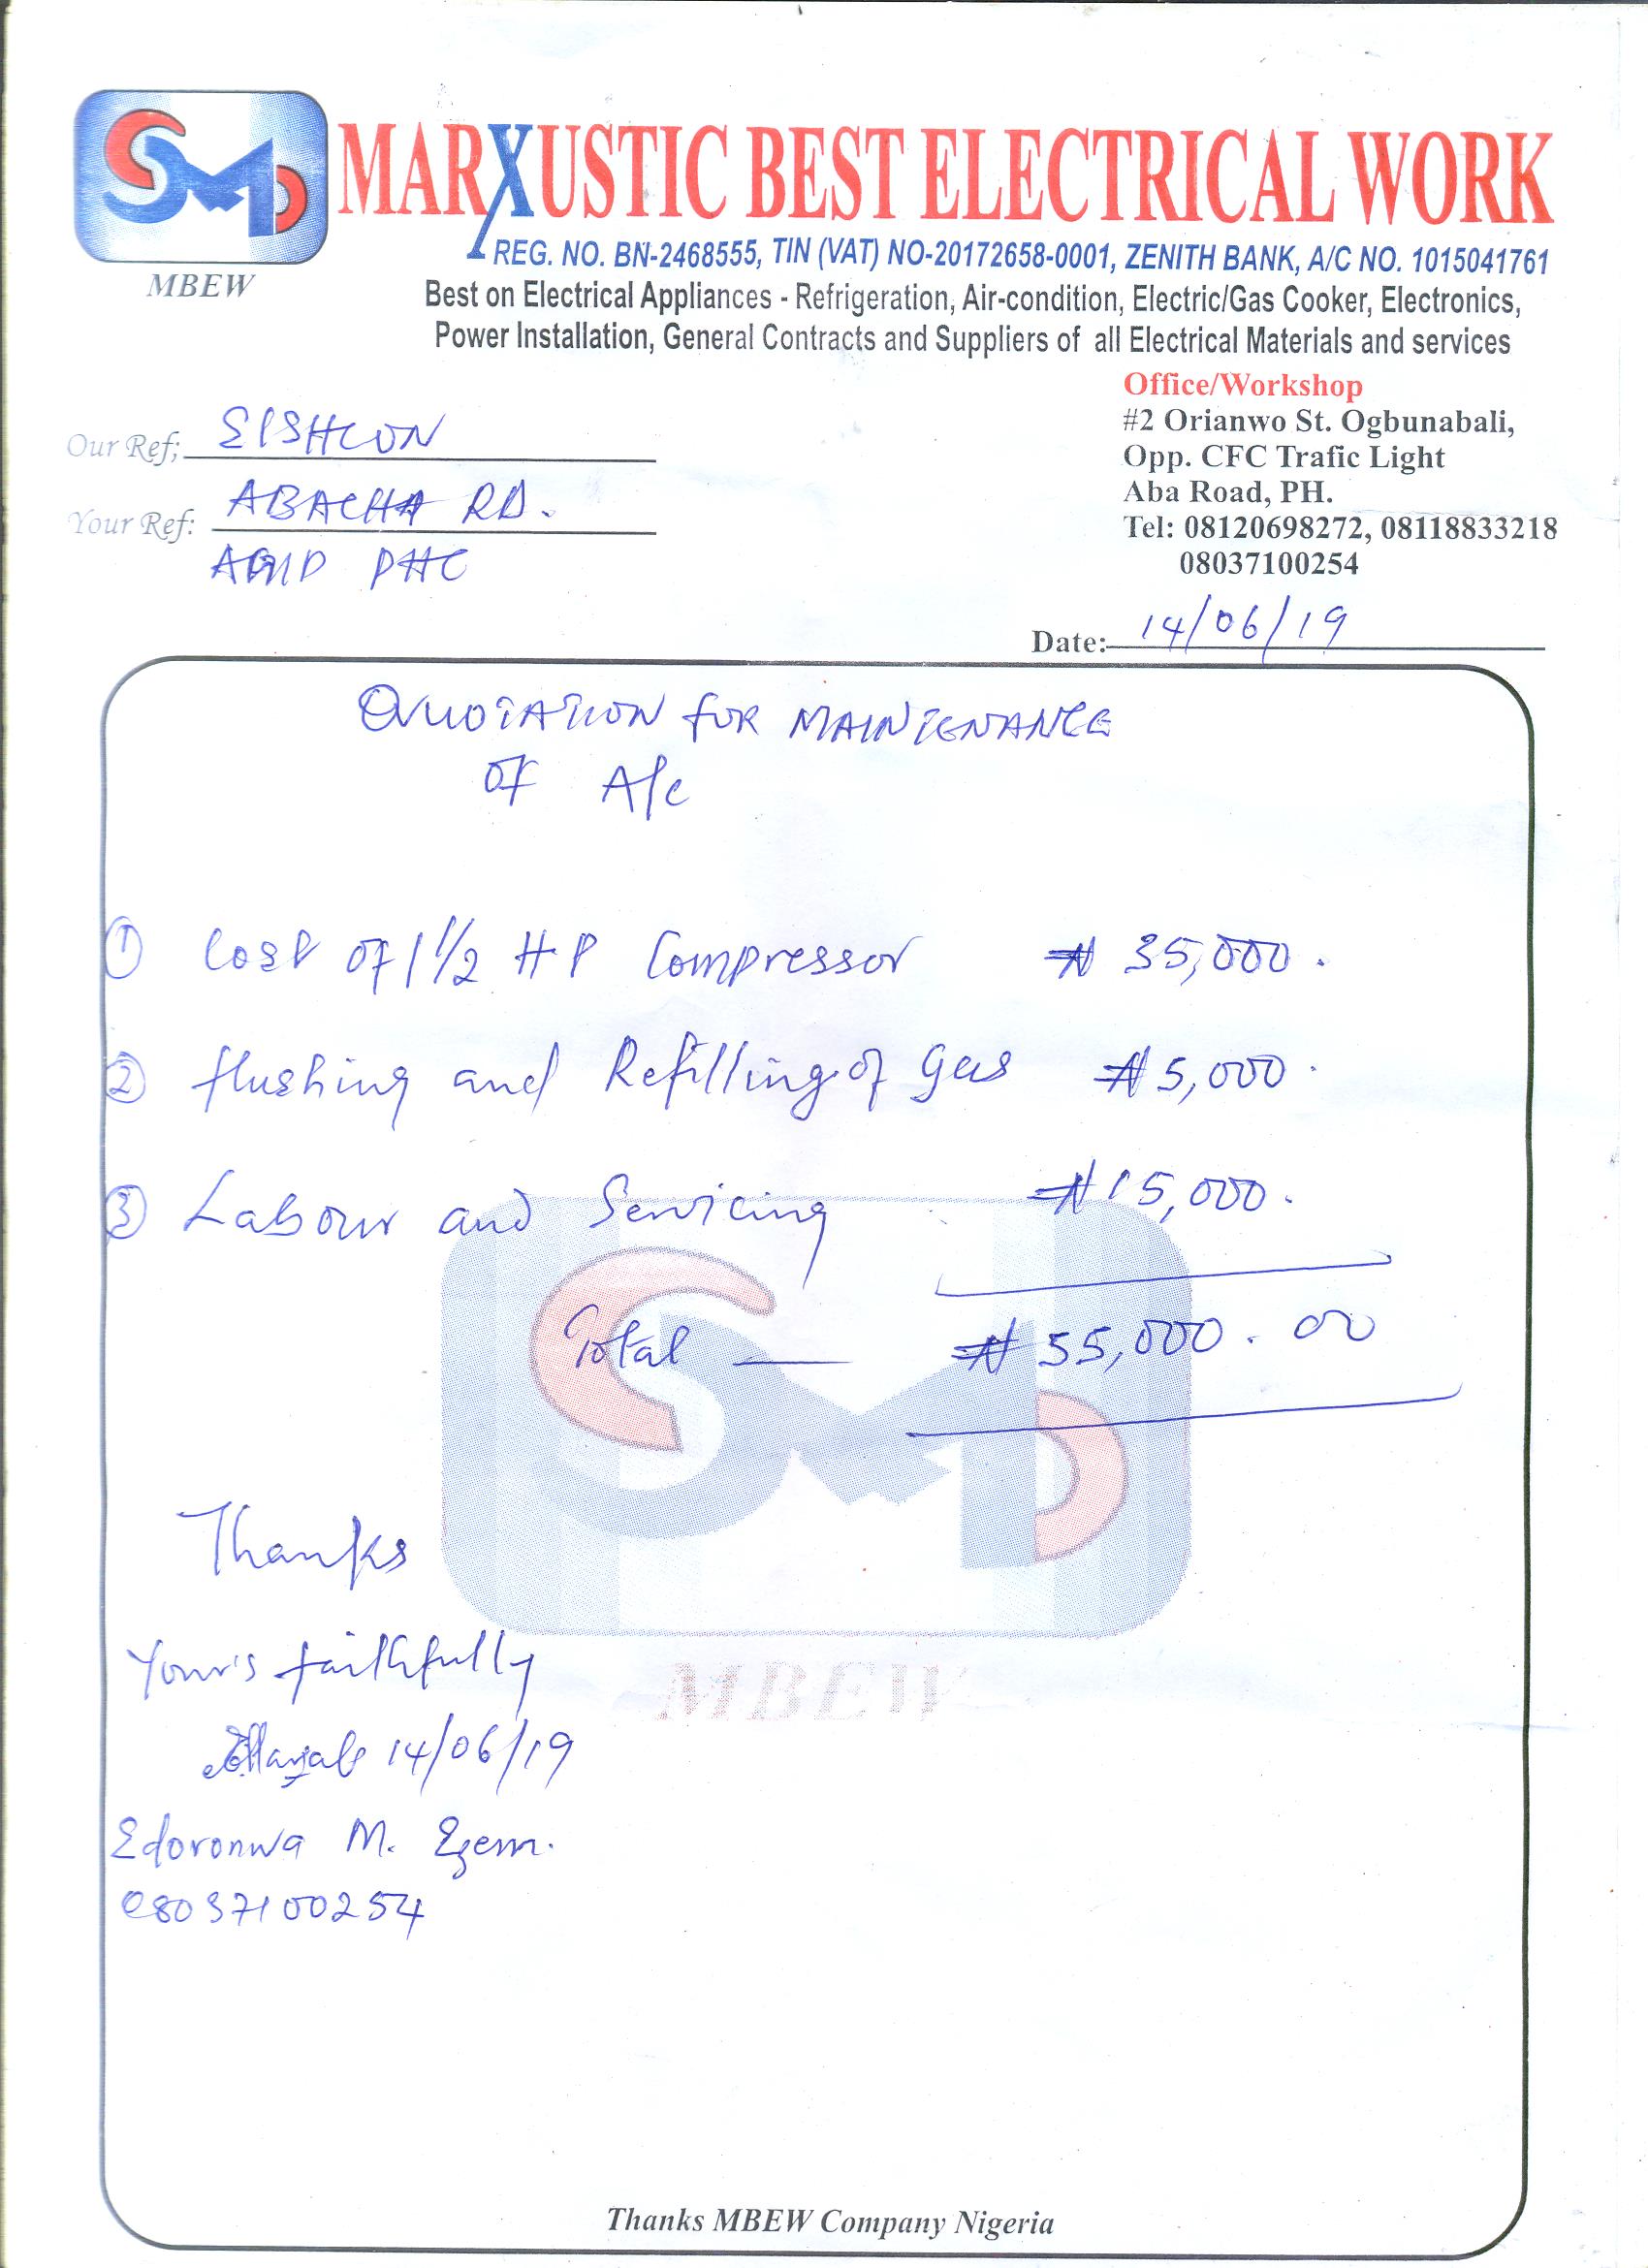 SMD
MBEW
MARXUSTIC BEST ELECTRICAL WORK
REG. NO. BN-2468555, TIN (VAT) NO-20172658-0001, ZENITH BANK, A/C NO. 1015041761
Best on Electrical Appliances - Refrigeration, Air-condition, Electric/Gas Cooker, Electronics,
Power Installation, General Contracts and Suppliers of all Electrical Materials and services
Office/Workshop
#2 Orianwo St. Ogbunabali,
Opp. CFC Trafic Light
Aba Road, PH.
Tel: 08120698272, 08118833218
08037100254
Our Ref;
Your Ref: ABACHA RD.
PHC
Date: 14/06/19
QUOTATION FOR MAINTENANCE
OF A/c
① Cost of 1 1/2 HP Compressor ₦ 35,000.
② flushing and Refilling of gas ₦ 5,000.
③ Labour and Servicing ₦ 15,000.
Total — ₦ 55,000.00
Thanks
Your's faithfully
14/06/19
Edoronwa M. Ezem.
08037100254
SMD
MBEW
Thanks MBEW Company Nigeria